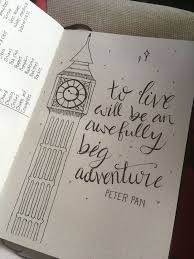 to live
will be an
awefully
big
adventure
PETER PAN